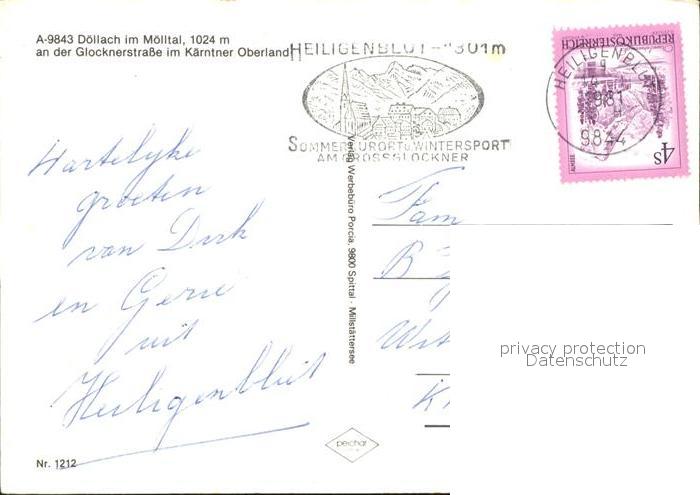 A-9843 Döllach im Mölltal, 1024 m
an der Glocknerstraße im Kärntner Oberland
HEILIGENBLUT - 1301m
SOMMERKURORT u WINTERSPORT
AM GROSSGLOCKNER
HEILIGENBLUT
1981
9844
REPUBLIK ÖSTERREICH
4s
ALMSEE
Hartelyke
groeten
van Dirk
en Gerie
uit
Heiligenblut
Fam
B
Wit
K
Verlag Werbebüro Porcia, 9800 Spittal - Millstättersee
privacy protection
Datenschutz
perchar
Nr. 1212